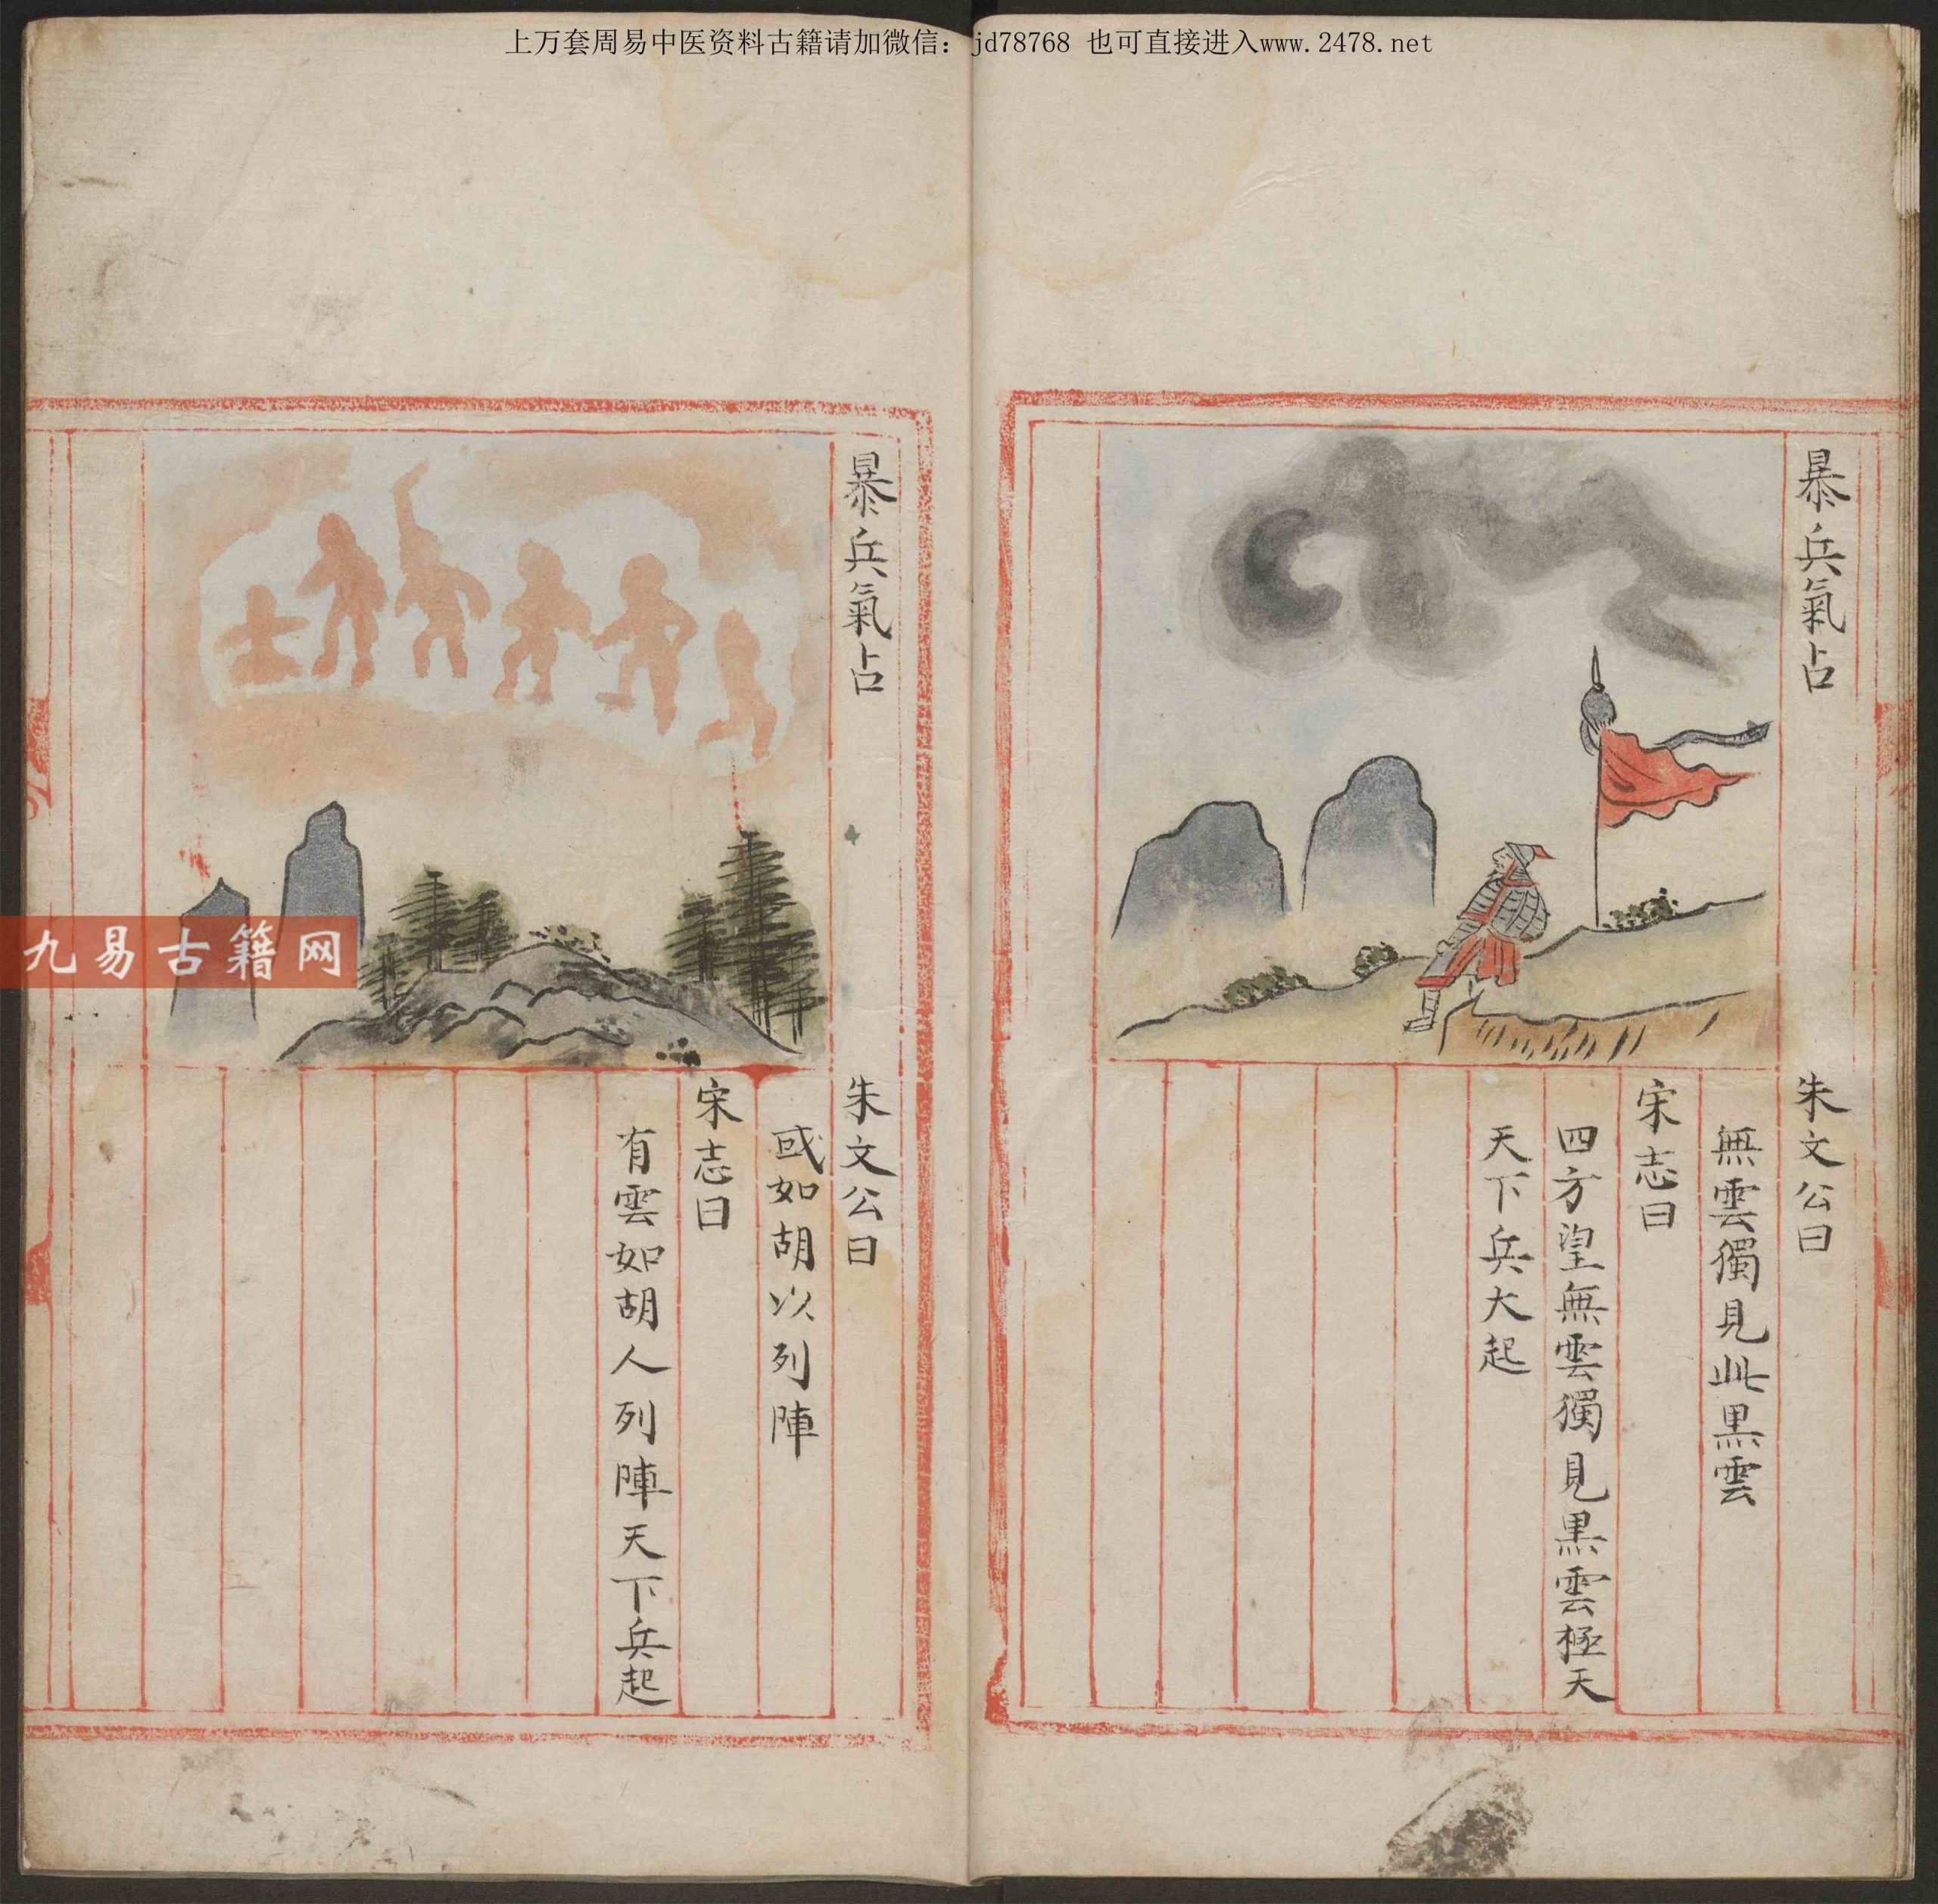 上万套周易中医资料古籍请加微信：jd78768 也可直接进入www.2478.net
暴兵氣占
朱文公曰
無雲獨見此黒雲
宋志曰
四方望無雲獨見黒雲極天
天下兵大起
暴兵氣占
朱文公曰
或如胡以列陣
宋志曰
有雲如胡人列陣天下兵起
九易古籍网